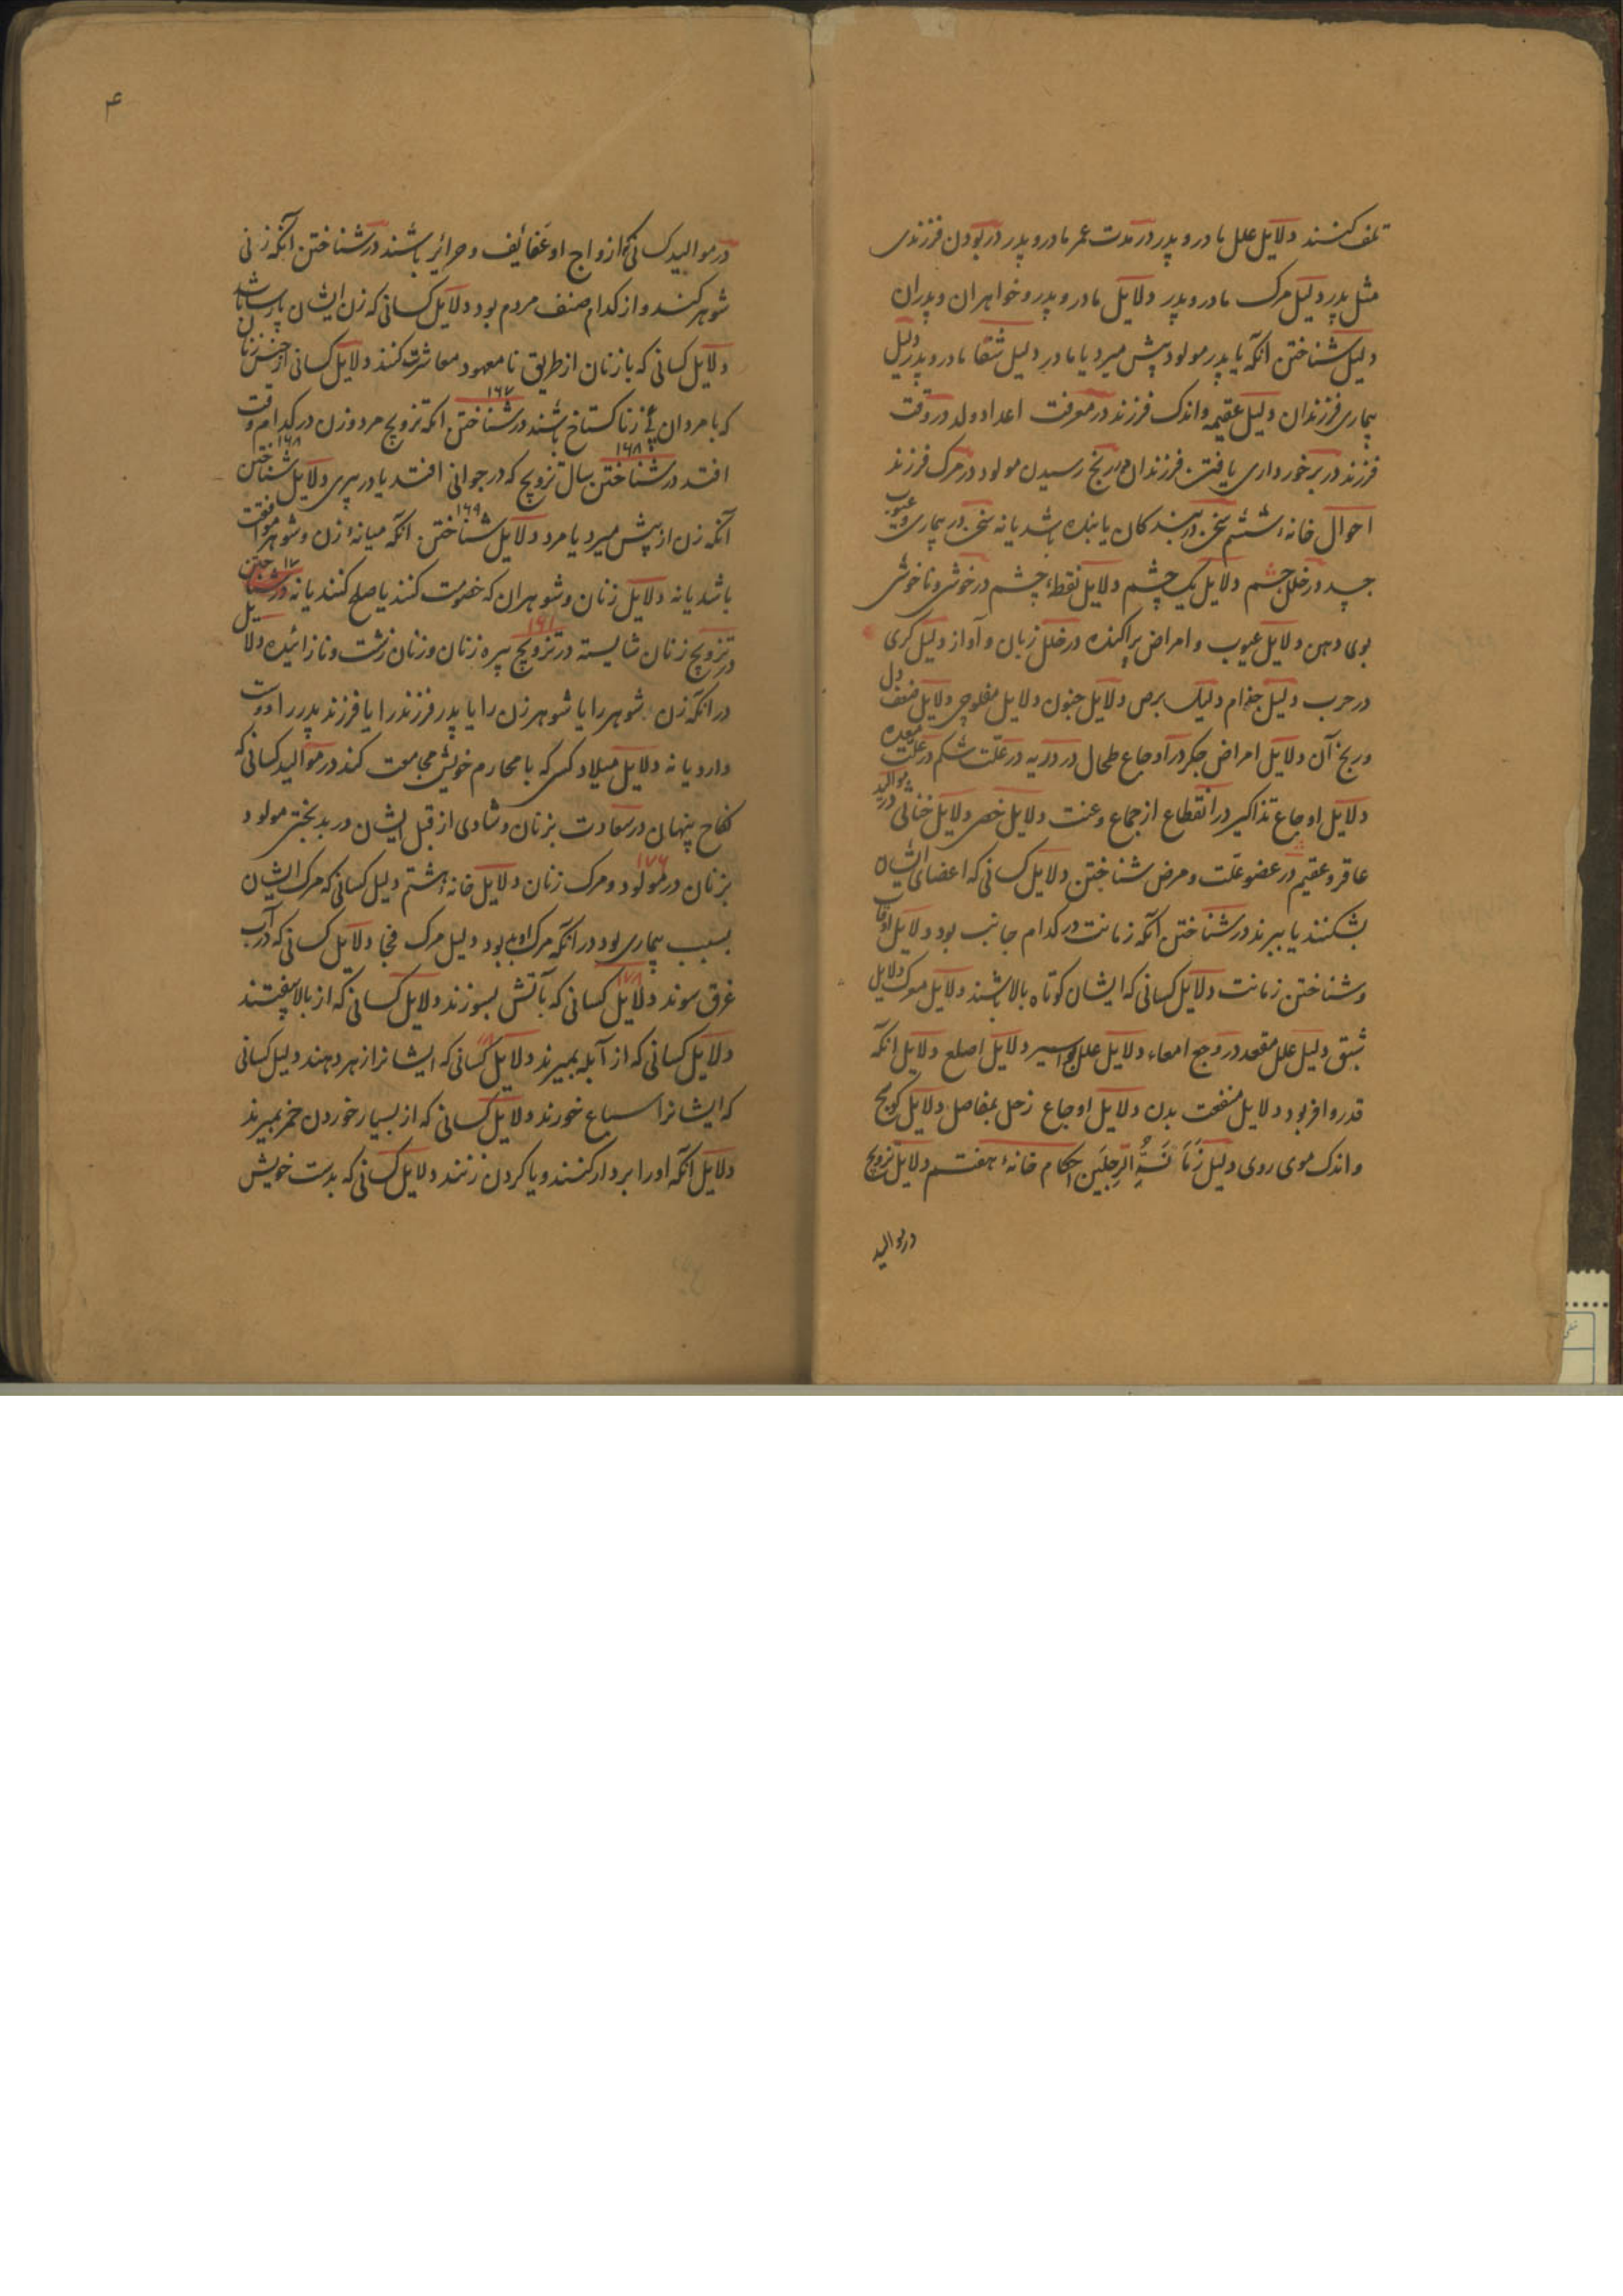 تلف کنند دلایل علل مادر و پدر در مدت عمر مادر و پدر در بودن فرزندی
مثل پدر دلیل مرک مادر و پدر دلایل مادر و پدر و خواهران و پدران
دلیل شناختن انکه یا پدر مولود پیش میرد یا مادر دلیل شقا مادر و پدر دلیل
بیماری فرزندان دلیل عقیمه و اندک فرزند در معرفت اعداد ولد در وقت
فرزند در برخورداری یافتن فرزندان در رنج رسیدن مولود در مرک فرزند
احوال خانهٔ ششتم سخن در بندکان یابنده باشد یا نه سخن در بیماری و عیوب
جسد در خلل چشم دلایل یک چشم دلایل نقطهٔ چشم در خوشی و ناخوشی
بوی دهن دلایل عیوب و امراض پراکنده در خلل زبان و آواز دلیل کری
در جرب دلیل جذام دلیل برص دلایل جنون دلایل مفلوجی دلایل ضعف دل
و رنج آن دلایل امراض جکر در اوجاع طحال در در علّت شکم در علّت معده
دلایل اوجاع تذاکیر در انقطاع از جماع و عنت دلایل خصی دلایل خناثی در موالید
عاقر و عقیم در عضو علّت و مرض شناختن دلایل کسانی که اعضای ایشان
بشکنند یا ببرند در شناختن آنکه زمانت در کدام جانب بود دلایل اوقات
و شناختن زمانت دلایل کسانی که ایشان کوتاه بالا باشند دلایل دلایل
شبق دلیل علل مقعد در وجع امعاء دلایل علل بواسیر دلایل اصلع دلایل انکه
قدر و افزبود دلایل منفعت بدن دلایل اوجاع زحل بمفاصل دلایل کوسج
و اندک موی روی دلیل زَمَانَةِ الرِجلَین احکام خانهٔ هفتم دلایل تزویج
در موالید
۴
در موالید کسانی که ازواج او عَفایُف و حرائر باشند در شناختن آنکه زنی
شوهر کند و از کدام صنف مردم بود دلایل کسانی که زن ایشان پارسا باشد
دلایل کسانی که با زنان از طریق نامعهود معاشرت کنند دلایل کسانی از جنس زنان
که با مردان بی زنا کستاخ باشند در شناختن انکه تزویج مرد و زن در کدام وقت
۱۶۷
افتد در شناختن سال تزویج که در جوانی افتد یا در پیری دلایل شناختن
۱۶۸ ۱۶۸
آنکه زن از پیش میرد یا مرد دلایل شناختن انکه میانهٔ زن و شوهر موافقت
۱۶۹
باشد یا نه دلایل زنان و شوهران که خصومت کنند یا صلح کنند یا نه در شناختن
۱۷
در تزویج زنان شایسته در تزویج پیره زنان و زنان زشت و نازائیده دلایل
در انکه زن شوهر را یا شوهر زن را یا پدر فرزند را یا فرزند پدر را دوست
دارد یا نه دلایل میلاد کسی که با محارم خویش مجامعت کند در موالید کسانی که
نکاح پنهان در سعادت بزنان و شادی از قبل ایشان در بدبختی مولود
بزنان در مولود و مرک زنان دلایل خانهٔ هشتم دلیل کسانی که مرک ایشان
۱۷۶
بسبب بیماری بود در انکه مرک او بود دلیل مرک فجا دلایل کسانی که در آب
غرق سوند دلایل کسانی که بآتش بسوزند دلایل کسانی که از بالا بیفتند
۱۷۸
دلایل کسانی که از آبله بمیرند دلایل کسانی که ایشانرا زهر دهند دلیل کسانی
که ایشانرا سباع خورند دلایل کسانی که از بسیار خوردن خمر بمیرند
دلایل آنکه او را بردار کنند و یا کردن زنند دلایل کسانی که بدست خویش